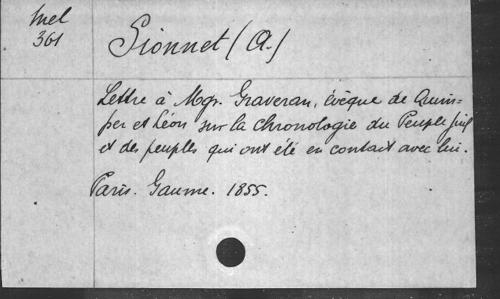 Mel
361
Sionnet (A.)
Lettre à Mgr. Graveran, évêque de Quim=
per et Léon sur la chronologie du Peuple juif
et des peuples qui ont été en contact avec lui.
Paris. Gaume. 1855.